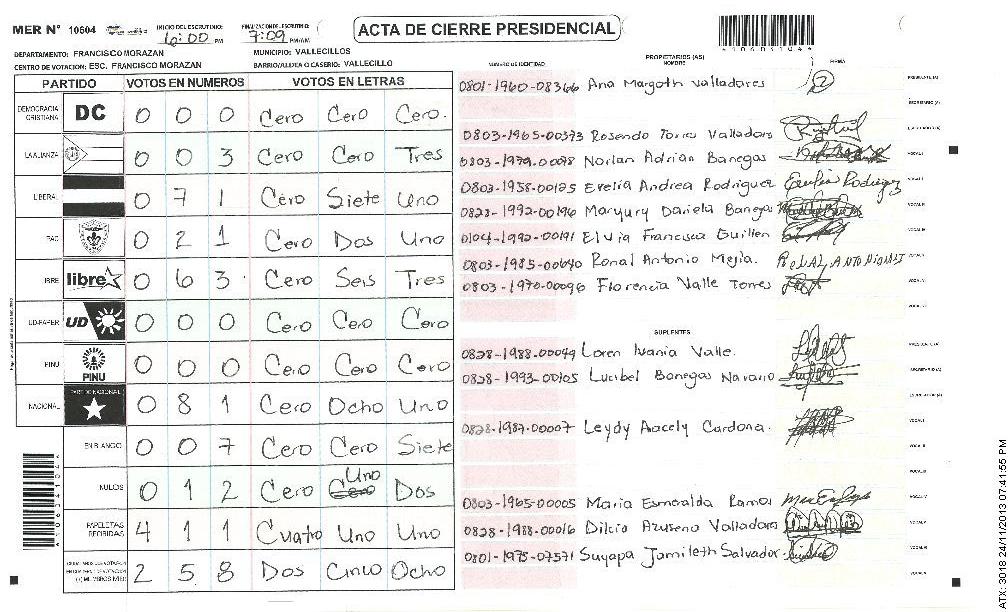 MER N° 10604
INICIO DEL ESCRUTINIO: 6:00 PM
FINALIZACION ESCRUTINIO: 7:09 PM/AM
ACTA DE CIERRE PRESIDENCIAL
DEPARTAMENTO: FRANCISCO MORAZAN
MUNICIPIO: VALLECILLOS
CENTRO DE VOTACION: ESC. FRANCISCO MORAZAN
BARRIO/ALDEA O CASERIO: VALLECILLO
PARTIDO VOTOS EN NUMEROS VOTOS EN LETRAS
DEMOCRACIA CRISTIANA DC 0 0 0 Cero Cero Cero.
LA ALIANZA 0 0 3 Cero Cero Tres
LIBERAL 0 7 1 Cero Siete Uno
PAC 0 2 1 Cero Dos Uno
LIBRE libre 0 6 3 Cero Seis Tres
UD-FAPER UD 0 0 0 Cero Cero Cero
PINU PINU 0 0 0 Cero Cero Cero
NACIONAL PARTIDO NACIONAL 0 8 1 Cero Ocho Uno
EN BLANCO 0 0 7 Cero Cero Siete
NULOS 0 1 2 Cero Uno Dos
PAPELETAS RECIBIDAS 4 1 1 Cuatro Uno Uno
2 5 8 Dos Cinco Ocho
NUMERO DE IDENTIDAD
PROPIETARIOS (AS)
NOMBRE
FIRMA
0801-1960-08366 Ana Margoth Valladares
0803-1965-00393 Rosendo Torres Valladares
0803-1979-00098 Norlan Adrian Banegas
0803-1958-00125 Evelia Andrea Rodriguez
0828-1992-00196 Maryury Daniela Banegas
0104-1992-00191 Elvia Francisca Guillen
0803-1985-00640 Ronal Antonio Mejia.
0803-1970-00096 Florencia Valle Torres
SUPLENTES
0828-1988-00049 Loren Ivania Valle.
0828-1993-00105 Lucibel Banegas Navarro
0828-1987-00007 Leydy Aacely Cardona.
0803-1965-00005 Maria Esmeralda Ramos
0828-1988-00016 Dilcia Azucena Valladares
0801-1975-07571 Suyapa Jamileth Salvador
ATX: 3018 24/11/2013 07:41:55 PM